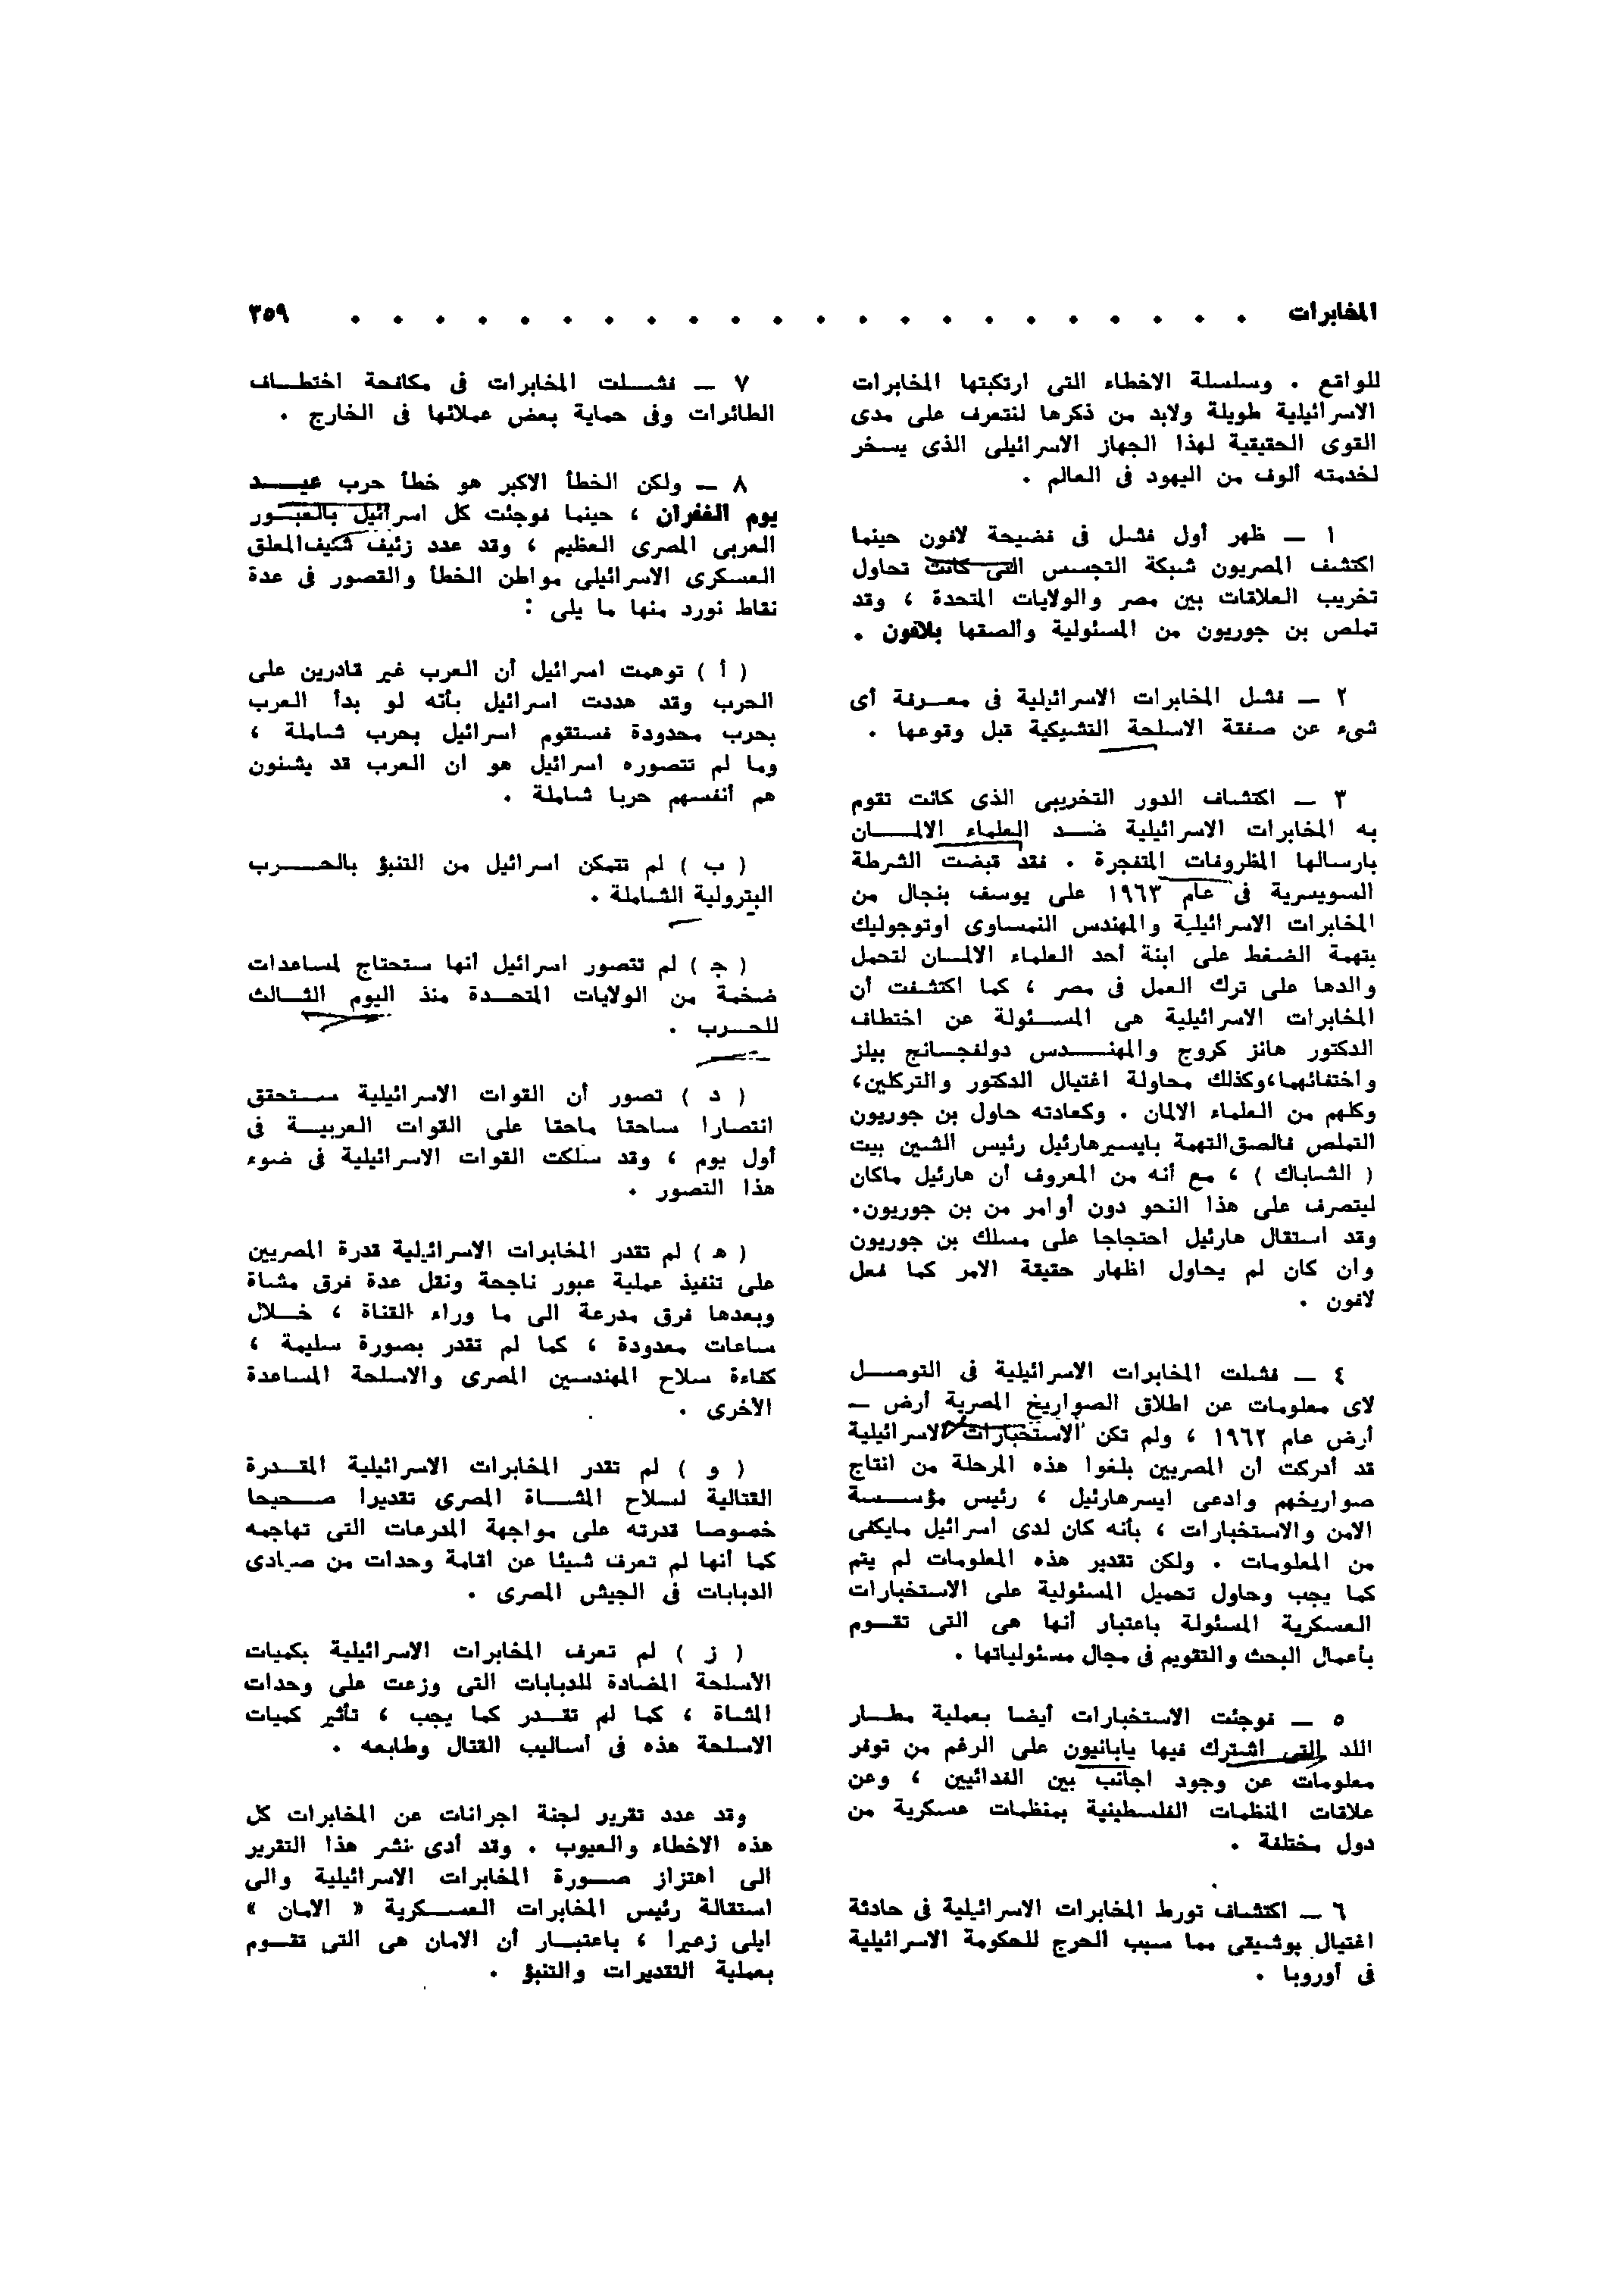 المخابرات . . . . . . . . . . . . . . . . . . . . . . ٣٥٩
للواقع . وسلسلة الاخطاء التى ارتكبتها المخابرات
الاسرائيلية طويلة ولابد من ذكرها لنتعرف على مدى
القوى الحقيقية لهذا الجهاز الاسرائيلى الذى يسخر
لخدمته ألوف من اليهود فى العالم .
١ — ظهر أول فشل فى فضيحة لافون حينما
اكتشف المصريون شبكة التجسس التى كانت تحاول
تخريب العلاقات بين مصر والولايات المتحدة ، وقد
تملص بن جوريون من المسئولية وألصقها بلافون .
٢ — فشل المخابرات الاسرائيلية فى معرفة أى
شىء عن صفقة الاسلحة التشيكية قبل وقوعها .
٣ — اكتشاف الدور التخريبى الذى كانت تقوم
به المخابرات الاسرائيلية ضد العلماء الالمان
بارسالها المظروفات المتفجرة . فقد قبضت الشرطة
السويسرية فى عام ١٩٦٣ على يوسف بنجال من
المخابرات الاسرائيلية والمهندس النمساوى اوتوجوليك
بتهمة الضغط على ابنة أحد العلماء الالمان لتحمل
والدها على ترك العمل فى مصر ، كما اكتشفت أن
المخابرات الاسرائيلية هى المسئولة عن اختطاف
الدكتور هانز كروج والمهندس دولفجانج بيلز
واختفائهما،وكذلك محاولة اغتيال الدكتور والتركلين،
وكلهم من العلماء الالمان . وكعادته حاول بن جوريون
التملص فالصق التهمة بايسيرهارئيل رئيس الشين بيت
( الشاباك ) ، مع أنه من المعروف أن هارئيل ماكان
ليتصرف على هذا النحو دون أوامر من بن جوريون.
وقد استقال هارئيل احتجاجا على مسلك بن جوريون
وان كان لم يحاول اظهار حقيقة الامر كما فعل
لافون .
٤ — فشلت المخابرات الاسرائيلية فى التوصل
لاى معلومات عن اطلاق الصواريخ المصرية أرض —
أرض عام ١٩٦٢ ، ولم تكن الاستخبارات الاسرائيلية
قد أدركت أن المصريين بلغوا هذه المرحلة من انتاج
صواريخهم وادعى ايسرهارئيل ، رئيس مؤسسة
الامن والاستخبارات ، بأنه كان لدى اسرائيل مايكفى
من المعلومات . ولكن تقدير هذه المعلومات لم يتم
كما يجب وحاول تحميل المسئولية على الاستخبارات
العسكرية المسئولة باعتبار أنها هى التى تقوم
بأعمال البحث والتقويم فى مجال مسئولياتها .
٥ — فوجئت الاستخبارات أيضا بعملية مطار
اللد التى اشترك فيها يابانيون على الرغم من توفر
معلومات عن وجود اجانب بين الفدائيين ، وعن
علاقات المنظمات الفلسطينية بمنظمات عسكرية من
دول مختلفة .
٦ — اكتشاف تورط المخابرات الاسرائيلية فى حادثة
اغتيال بوشيقى مما سبب الحرج للحكومة الاسرائيلية
فى أوروبا .
٧ — فشلت المخابرات فى مكافحة اختطاف
الطائرات وفى حماية بعض عملائها فى الخارج .
٨ — ولكن الخطأ الاكبر هو خطأ حرب عيد
يوم الغفران ، حينما فوجئت كل اسرائيل بالعبور
العربى المصرى العظيم ، وقد عدد زئيف شكيف المعلق
العسكرى الاسرائيلى مواطن الخطأ والقصور فى عدة
نقاط نورد منها ما يلى :
( أ ) توهمت اسرائيل أن العرب غير قادرين على
الحرب وقد هددت اسرائيل بأنه لو بدأ العرب
بحرب محدودة فستقوم اسرائيل بحرب شاملة ،
وما لم تتصوره اسرائيل هو ان العرب قد يشنون
هم أنفسهم حربا شاملة .
( ب ) لم تتمكن اسرائيل من التنبؤ بالحرب
البترولية الشاملة .
( ج ) لم تتصور اسرائيل أنها ستحتاج لمساعدات
ضخمة من الولايات المتحدة منذ اليوم الثالث
للحرب .
( د ) تصور أن القوات الاسرائيلية ستحقق
انتصارا ساحقا ماحقا على القوات العربية فى
أول يوم ، وقد سلكت القوات الاسرائيلية فى ضوء
هذا التصور .
( ه ) لم تقدر المخابرات الاسرائيلية قدرة المصريين
على تنفيذ عملية عبور ناجحة ونقل عدة فرق مشاة
وبعدها فرق مدرعة الى ما وراء القناة ، خلال
ساعات معدودة ، كما لم تقدر بصورة سليمة ،
كفاءة سلاح المهندسين المصرى والاسلحة المساعدة
الاخرى .
( و ) لم تقدر المخابرات الاسرائيلية المقدرة
القتالية لسلاح المشاة المصرى تقديرا صحيحا
خصوصا قدرته على مواجهة المدرعات التى تهاجمه
كما أنها لم تعرف شيئا عن اقامة وحدات من صيادى
الدبابات فى الجيش المصرى .
( ز ) لم تعرف المخابرات الاسرائيلية بكميات
الاسلحة المضادة للدبابات التى وزعت على وحدات
المشاة ، كما لم تقدر كما يجب ، تأثير كميات
الاسلحة هذه فى أساليب القتال وطابعه .
وقد عدد تقرير لجنة اجرانات عن المخابرات كل
هذه الاخطاء والعيوب . وقد أدى نشر هذا التقرير
الى اهتزاز صورة المخابرات الاسرائيلية والى
استقالة رئيس المخابرات العسكرية « الامان »
ايلى زعيرا ، باعتبار أن الامان هى التى تقوم
بعملية التقديرات والتنبؤ .